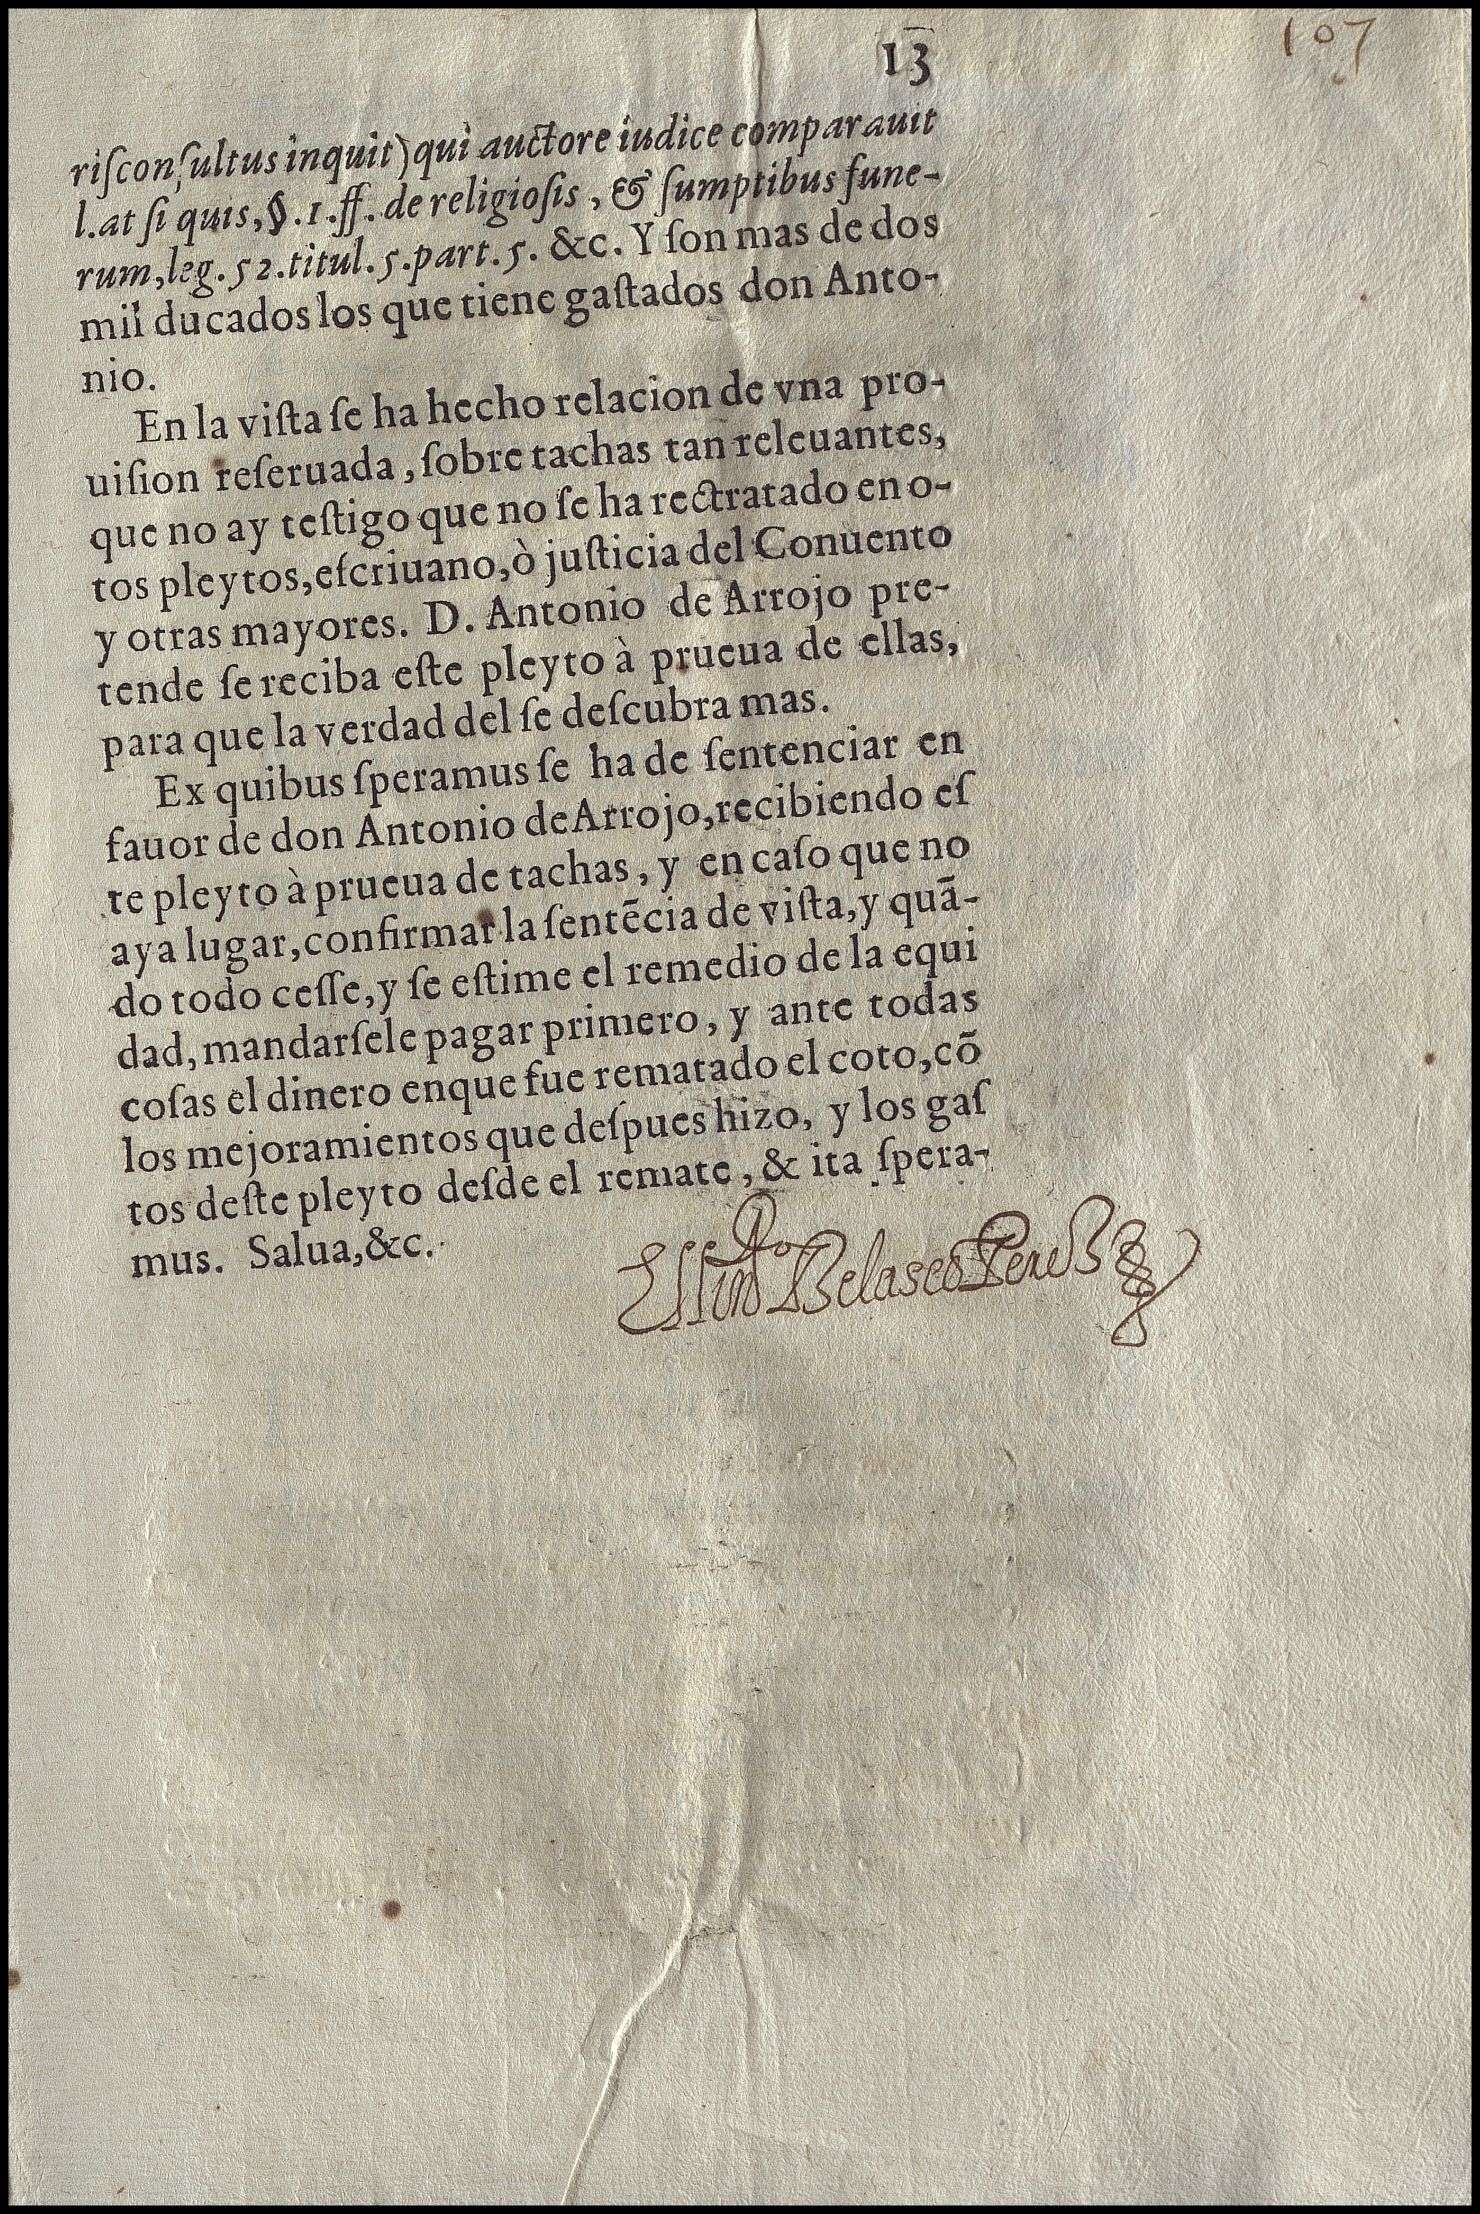 13
107
riſconſultus inquit) qui auctore iudice comparauit
l. at ſi quis, §. 1. ff. de religioſis, & ſumptibus fune-
rum, leg. 52. titul. 5. part. 5. &c. Y ſon mas de dos
mil ducados los que tiene gaſtados don Anto-
nio.
En la viſta ſe ha hecho relacion de vna pro-
uiſion reſeruada, ſobre tachas tan releuantes,
que no ay teſtigo que no ſe ha rectratado en o-
tos pleytos, eſcriuano, ò juſticia del Conuento
y otras mayores. D. Antonio de Arrojo pre-
tende ſe reciba eſte pleyto à prueua de ellas,
para que la verdad del ſe deſcubra mas.
Ex quibus ſperamus ſe ha de ſentenciar en
fauor de don Antonio de Arrojo, recibiendo eſ
te pleyto à prueua de tachas, y en caſo que no
aya lugar, confirmar la ſentẽcia de viſta, y quã-
do todo ceſſe, y ſe eſtime el remedio de la equi
dad, mandarſele pagar primero, y ante todas
coſas el dinero enque fue rematado el coto, cõ
los mejoramientos que deſpues hizo, y los gaſ
tos deſte pleyto deſde el remate, & ita ſpera-
mus. Salua, &c.
Belasco Perez